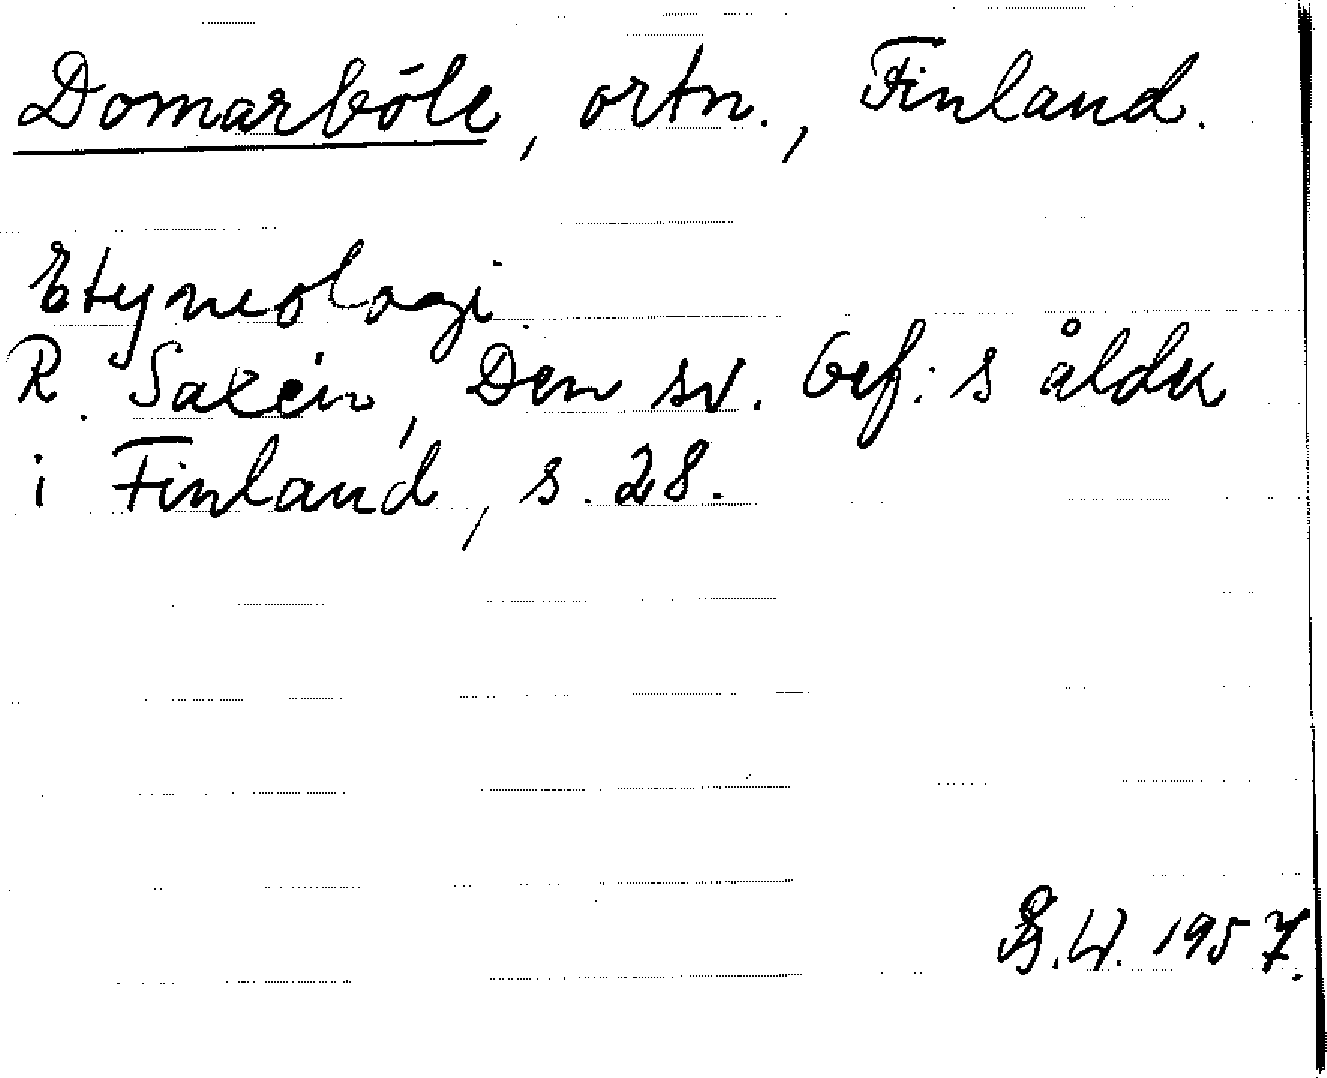 Domarböle, ortn., Finland.
Etymologi.
R. Saxén, Den sv. bef:s ålder
i Finland, s. 28.
Å.W. 1957.